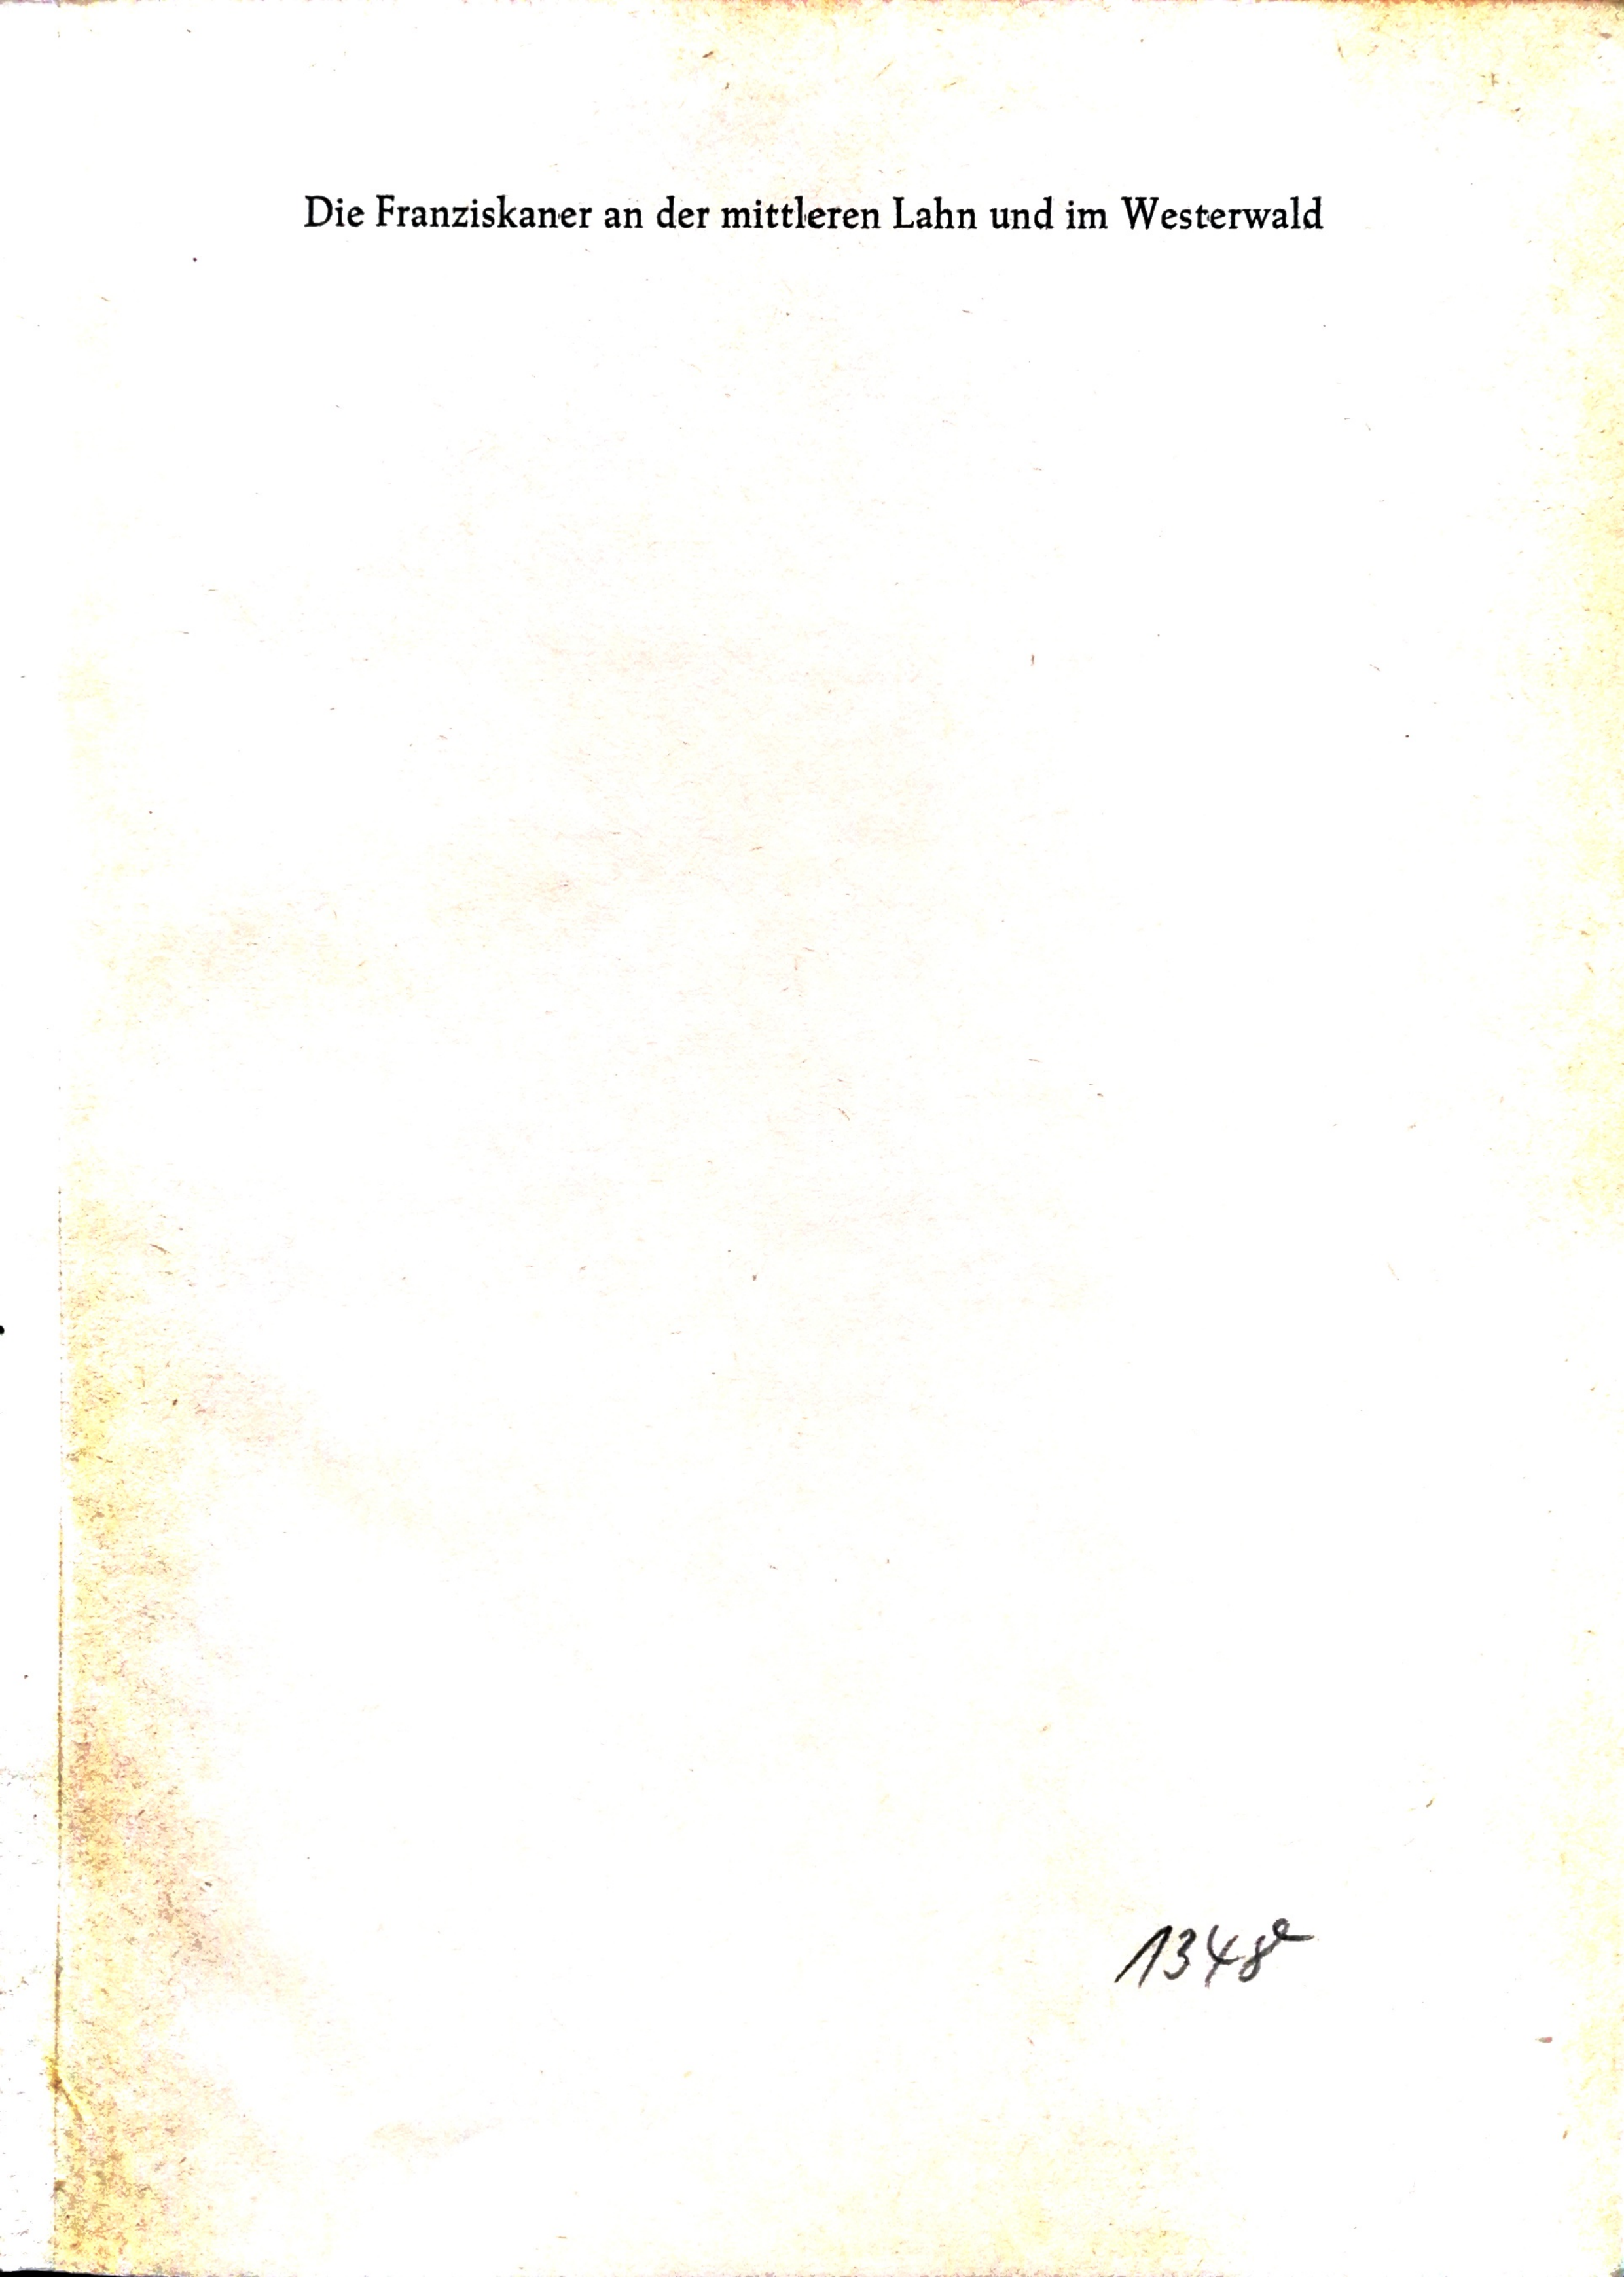 Die Franziskaner an der mittleren Lahn und im Westerwald
1348